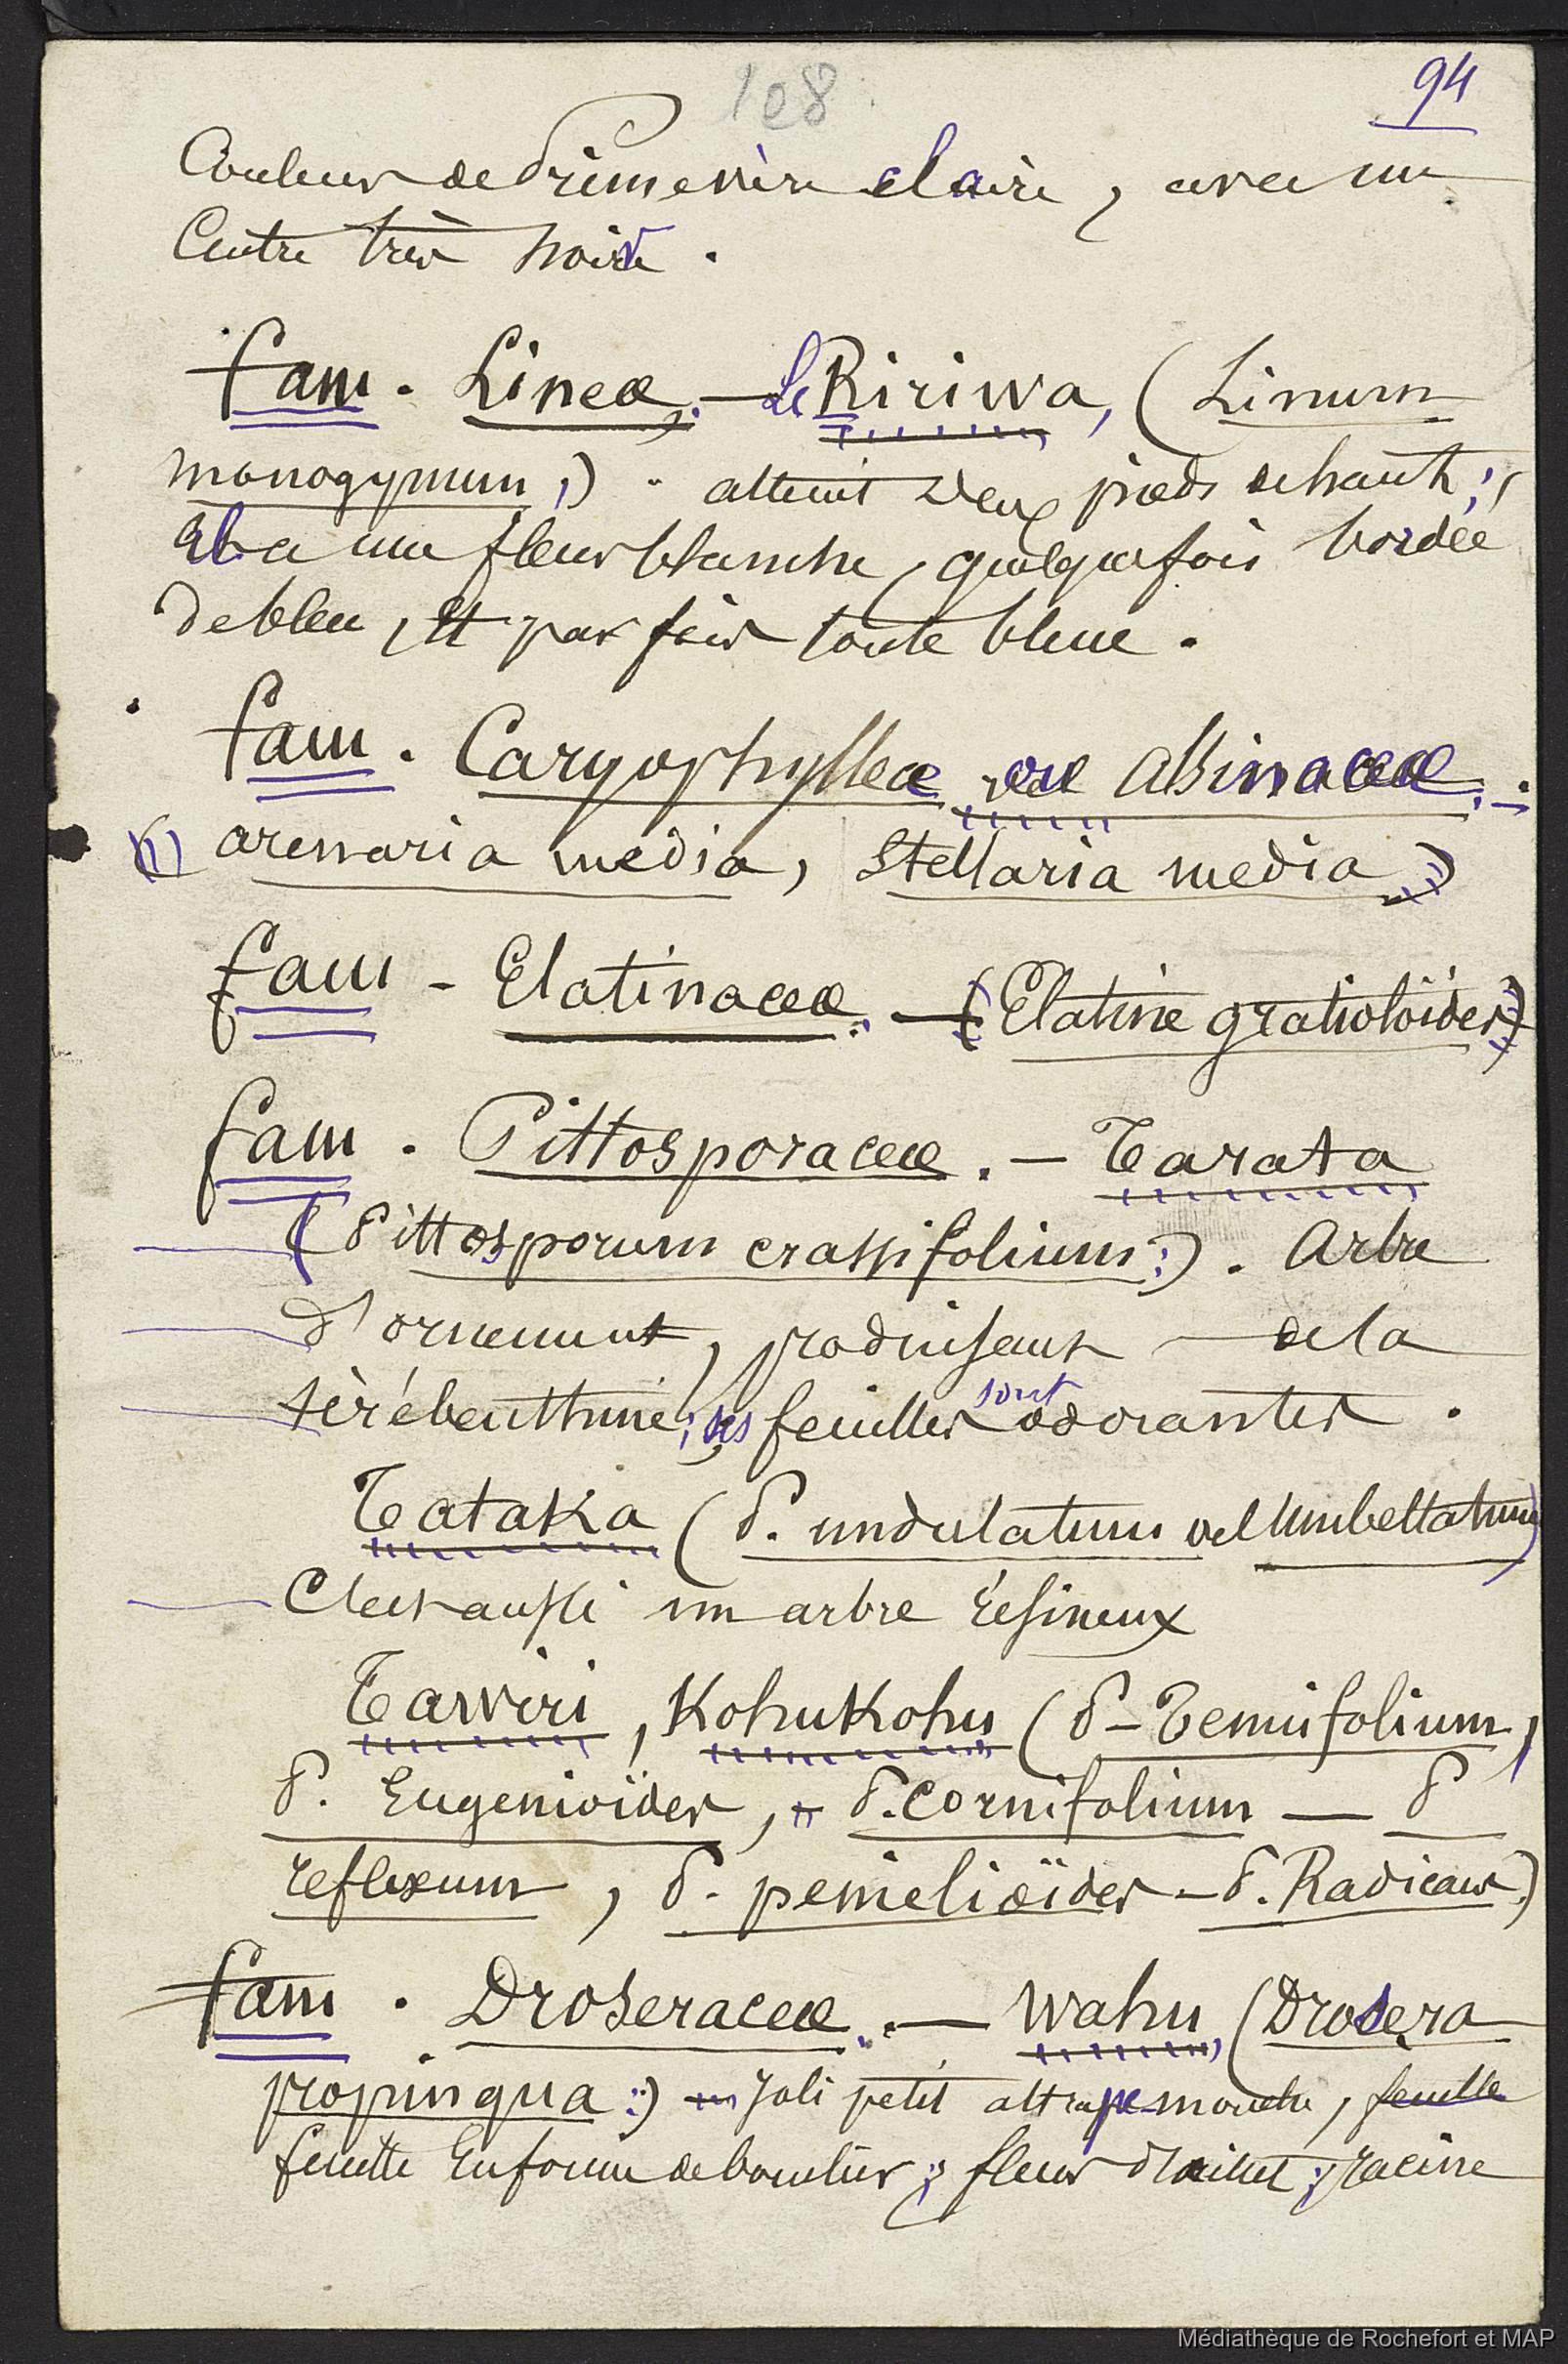 108
94
Couleur de Primevère claire, avec un
Centre très noir.
fam. Lineæ. — Le Ririwa, (Linum
monogynum,) atteint deux pieds de haut;
Il a une fleur blanche, quelquefois bordée
de bleu, Et parfois toute bleue.
fam. Caryophylleæ ou Alsinaceæ. -
(arenaria media, Stellaria media)
fam - Elatinaceæ. — (Elatine gratioloïdes)
fam. Pittosporaceæ. — Tarata
(Pittosporum crassifolium:). Arbre
d'ornement, produisant — de la
térébenthine; ses feuilles sont odorantes.
Tataka (P. undulatum vel Umbellatum)
C'est aussi un arbre résineux
Tawiri, Kohukohu (P - Tenuifolium,
P. Eugenioïdes, - P. cornifolium — P
reflexum, P. pemelioïdes - P. Radicans.)
fam. Droseraceæ. — Wahu, (Drosera
propinqua:) Joli petit attrape-mouche, feuille
feuille En forme de bouclier; fleur d'œillet; racine
Médiathèque de Rochefort et MAP